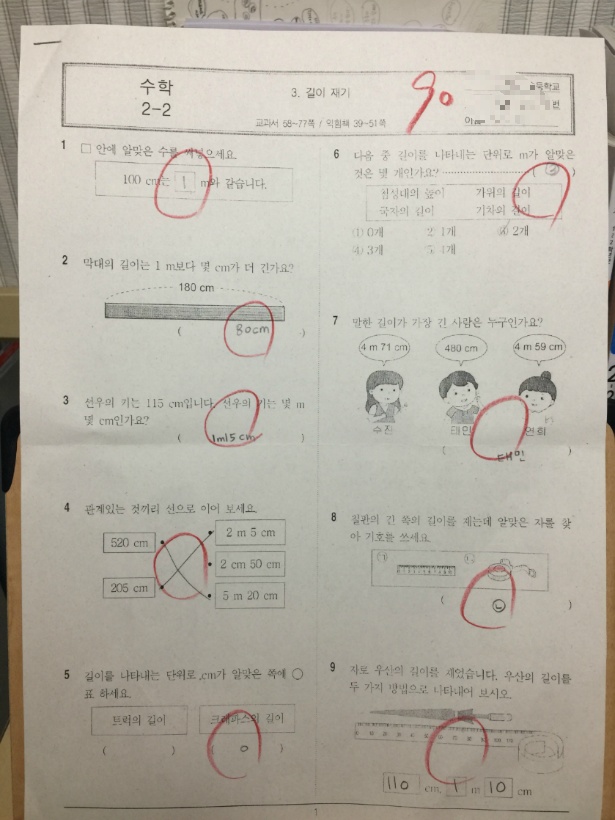 수학
2-2
3. 길이 재기
교과서 58~77쪽 / 익힘책 39~51쪽
90
등학교
번
1 □ 안에 알맞은 수를 써넣으세요.
100 cm는 1 m와 같습니다.
2 막대의 길이는 1 m보다 몇 cm가 더 긴가요?
180 cm
( 80cm )
3 선우의 키는 115 cm입니다. 선우의 키는 몇 m
몇 cm인가요?
( 1m15cm )
4 관계있는 것끼리 선으로 이어 보세요.
520 cm
205 cm
2 m 5 cm
2 cm 50 cm
5 m 20 cm
5 길이를 나타내는 단위로 cm가 알맞은 쪽에 ○
표 하세요.
트럭의 길이
크레파스의 길이
( ) ( ○ )
6 다음 중 길이를 나타내는 단위로 m가 알맞은
것은 몇 개인가요?
가위의 길이
국자의 길이 기차의 길이
① 0개 ② 1개 ③ 2개
④ 3개
7 말한 길이가 가장 긴 사람은 누구인가요?
4 m 71 cm 480 cm 4 m 59 cm
수진 태민 연희
( 태민 )
8 칠판의 긴 쪽의 길이를 재는데 알맞은 자를 찾
아 기호를 쓰세요.
㉠ ㉡
( ㉡ )
9 자로 우산의 길이를 재었습니다. 우산의 길이를
두 가지 방법으로 나타내어 보시오.
110 cm, 1 m 10 cm
1